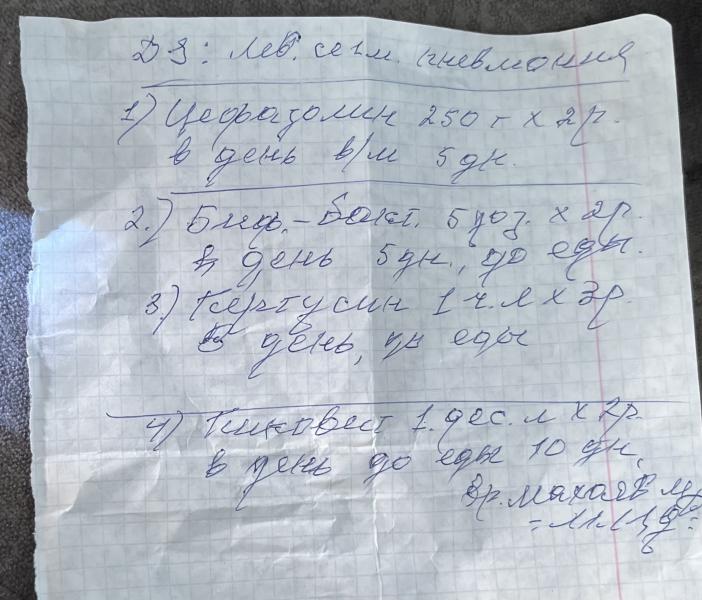 ДЗ: Лев. сегм. пневмония
1) Цефазолин 250 г х 2 р.
в день в/м 5 дн.
2.) Биф.-бакт. 5 доз. х 2 р.
в день 5 дн., до еды.
3.) Пертусин 1 ч. л х 3 р.
в день, до еды
4) Пиковит 1. дес. л х 2 р.
в день до еды 10 дн.
Вр. Махаев